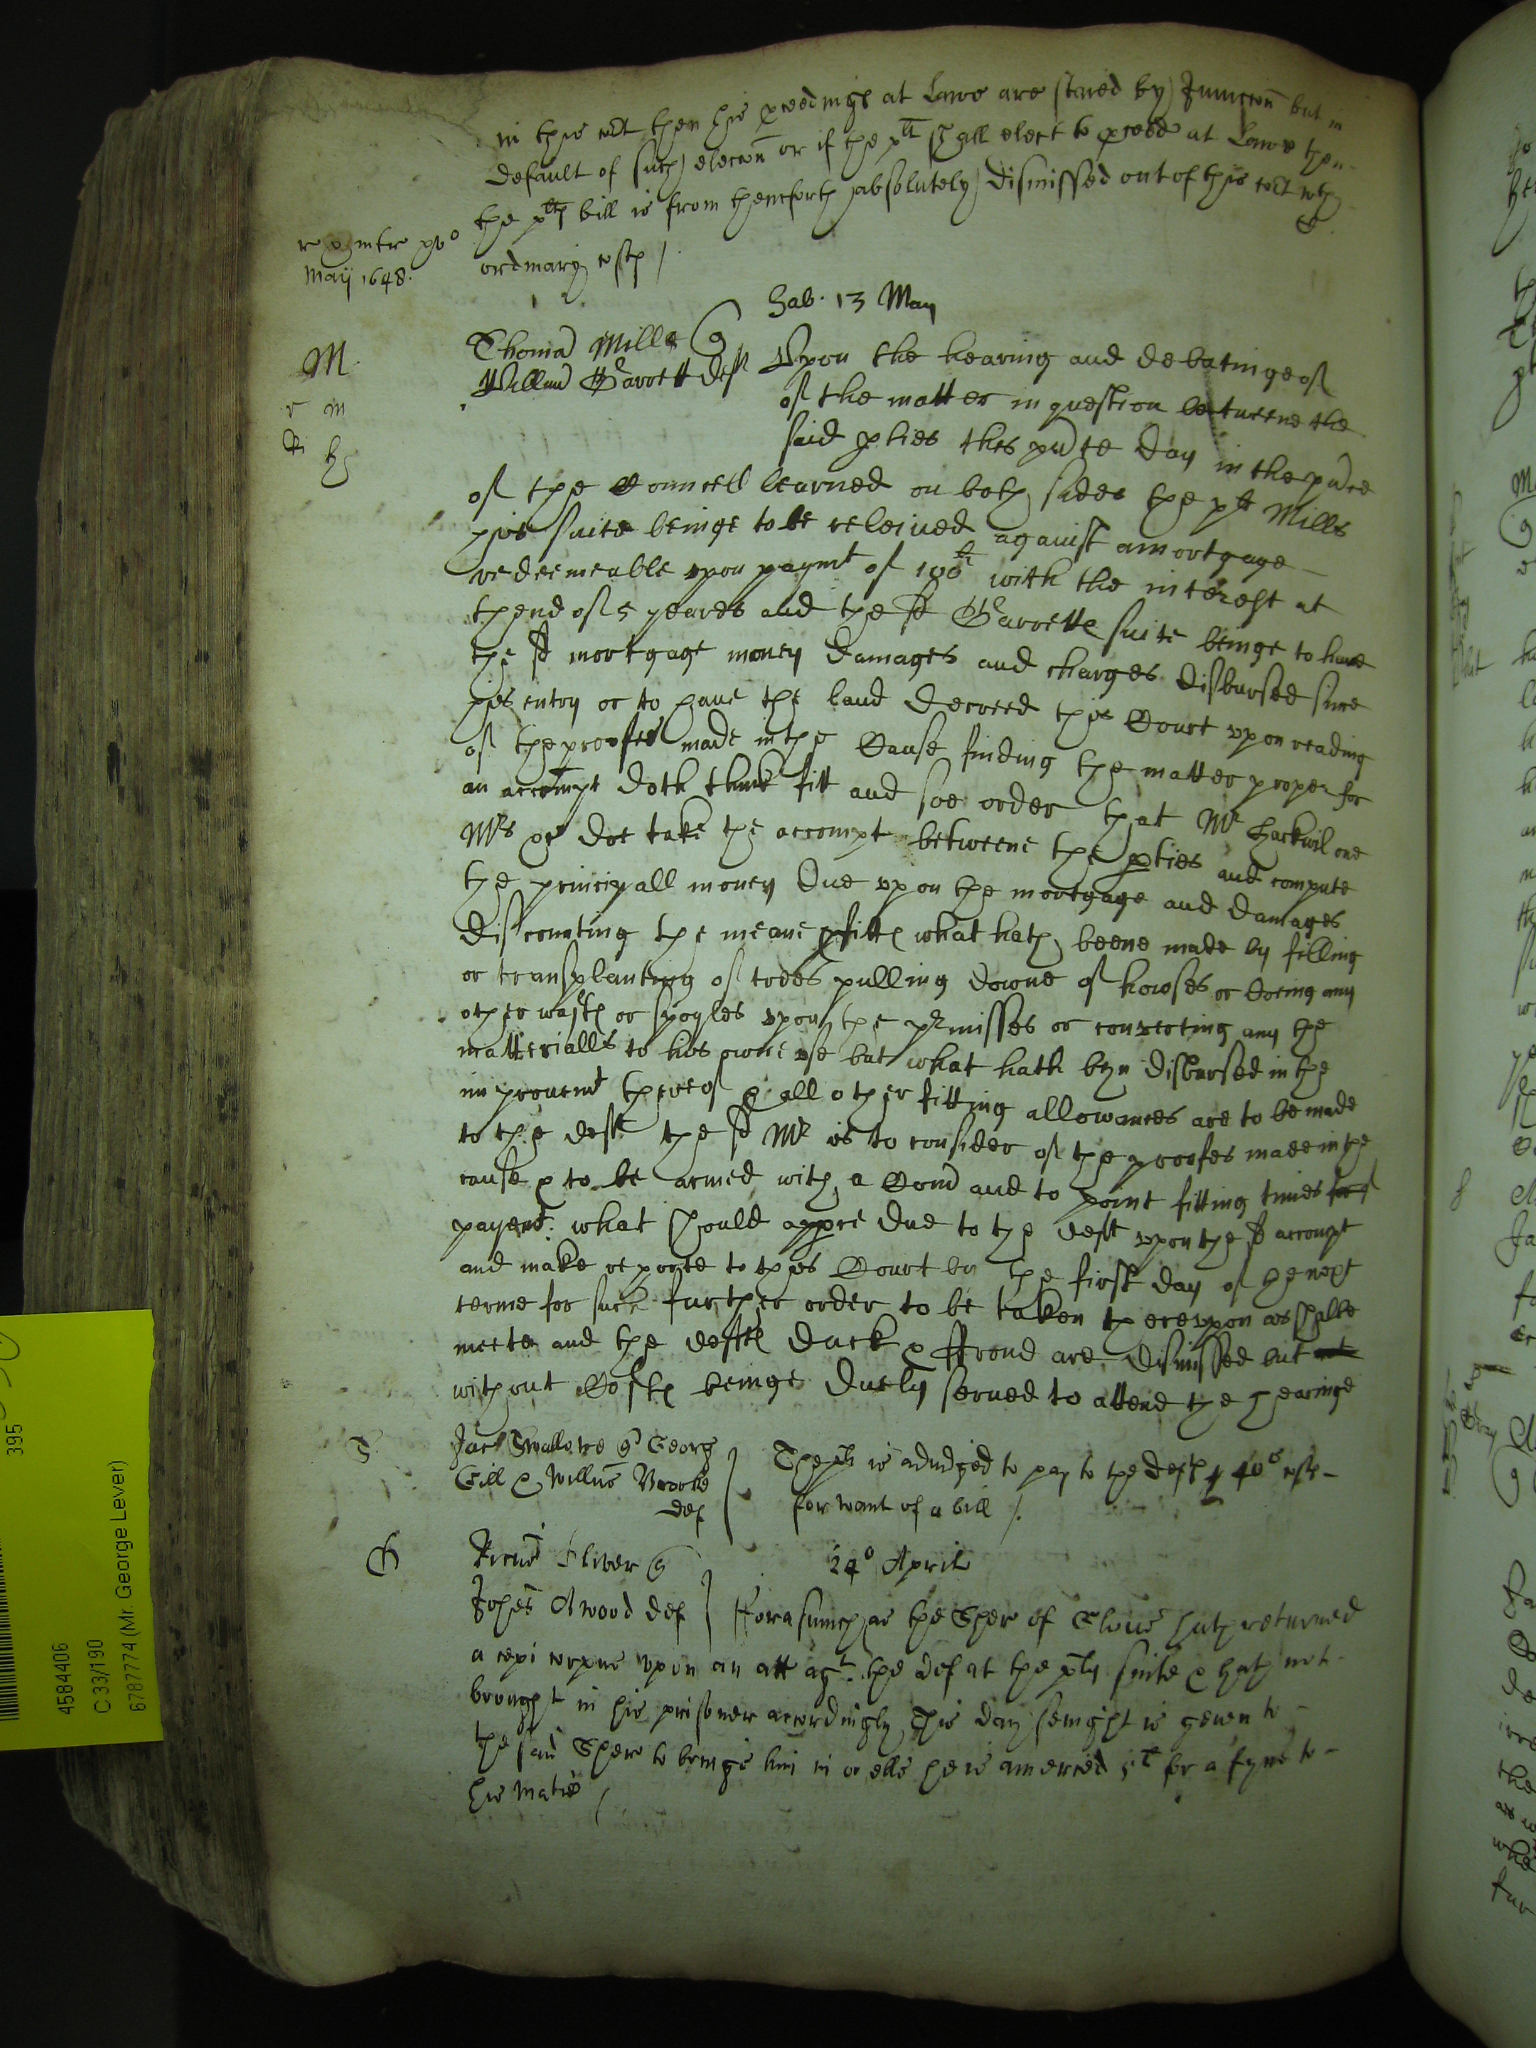 in this Cort then his pceedings at Lawe are staied by Iniunccon but in
default of such eleccon or if the plt shall elect to pceed at Lawe then
the plts bill is from henceforth absolutely dismissed out of this Cort wth
ordinary costs /.
Maij 1648.
Sab. 13 May
M
Thomas Mills
Willm Garrett deft
Upon the hearing and debatinge of
of the matter in question betweene the
said pties this pnte day in the pnce
r m
of the Councell learned on both sides the plt Mills
his suite beinge to be releived against a mortgage
redeemeable upon paymt of 100li with the interest at
thend of 5 yeares and the sd Garretts suite beinge to have
the sd mortgage money damages and charges disbursed since
his entry or to have the land decreed this Court upon reading
of the proofes made in the Cause finding the matter proper for
an accompt doth think fitt and soe order that Mr Hackwil one
Mrs &c doe take the accompt betweene the pties and compute
the principall money due upon the mortgage and damages
discounting the meane pfitts what hath beene made by felling
or transplanting of trees pulling downe of howses or doeing any
other wasts or spoyles upon the pmisses or converting any the
materialls to his owne use but what hath byn disbursed in the
improvemt thereof & all other fitting allowances are to be made
to the deft the sd Mr is to consider of the proofes made in the
cause & to be armed with a Comn and to point fitting times for
payemt. what should appre due to the deft upon the sd accompt
and make reporte to this Court by the first day of the next
terme for such further order to be taken thereupon as shalbe
meete and the defts Duck & ffroud are dismissed but
without Costs beinge duely served to attend the hearinge
S
Jac Swallowe Georg
Gill & Willm Brooke
def
The plt is adiudged to pay to the defts 40s costs
for want of a bill /.
G
Ricus Oliver
Johes Awood def
24o April
fforasmuch as the Sher of Glouc hath returned
a cepi corpus upon an att agt the def at the plts suite & hath not
brought in his prisoner accordingly This day senight is geven to
the said Sher to bringe him in or ells he is amerced 5li for a fyne to
his Matie /
395
4584406
C 33/190
6787774 (Mr. George Lever)